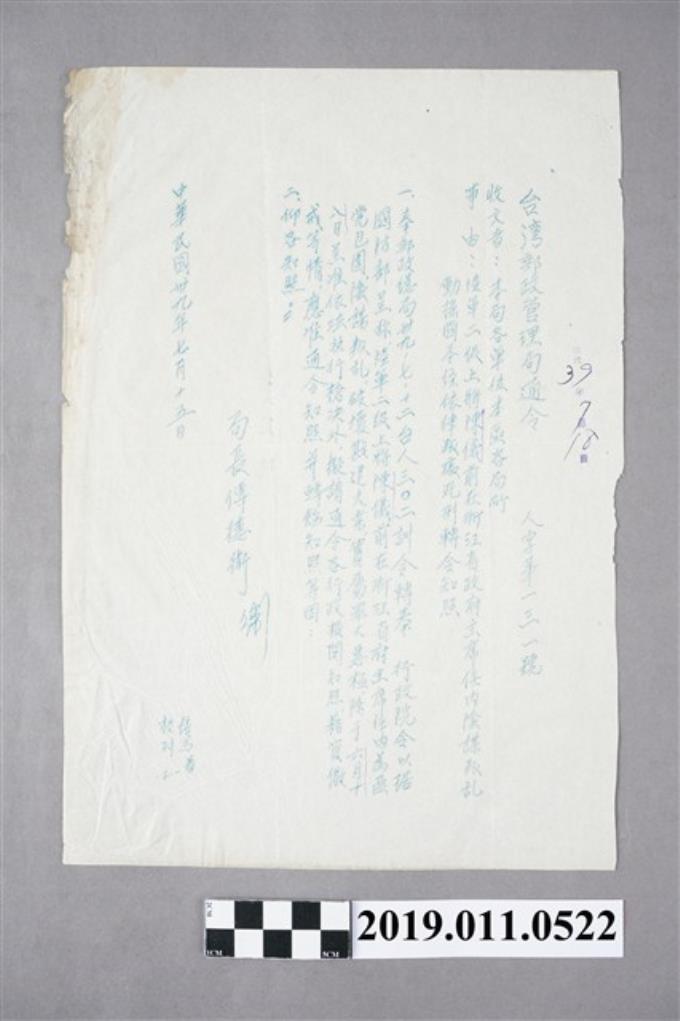 台湾郵政管理局通令　人字第一三一號
39 7 18
收文者：本局各單位本區各局所
事由：陸軍二级上將陳儀前在浙江省政府主席任内陰謀叛乱
動摇國本經依律叛處死刑轉令知照
一、奉郵政總局卅九、七、十二台人三〇二訓令轉奉　行政院令以据
國防部呈称陸軍二级上將陳儀前在浙江省府主席任内為匪
党包圍陰謀叛乱破壞戡建大業實屬罪大惡極除于六月十
八日呈准依法执行槍决外擬請通令各行政機関知照藉資儆
戒等情應准通令知照并轉飭知照等因：
二、仰各知照。
局長傅德衛
中華民國卅九年七月十五日
校對
2019.011.0522
1CM
5CM